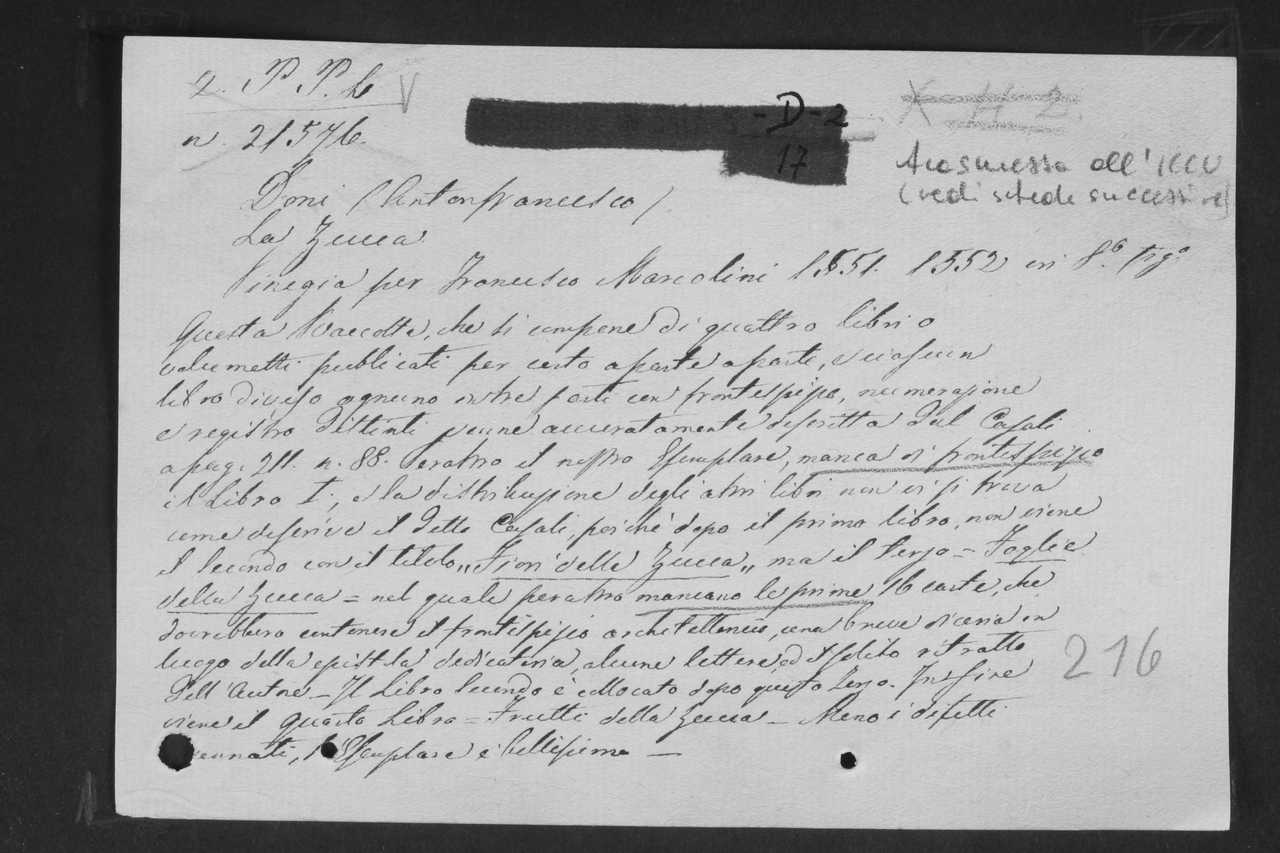 2. P. P. L V
n. 21576.
-D-2
17
X H 2.
Trasmessa all'ICCU
(vedi schede successive)
Doni (Antonfrancesco)
La Zucca
Vinegia per Francesco Marcolini 1551. 1552 in 8.º fig.º
Questa Raccolta, che si compone di quattro libri o
volumetti publicati per certo a parte a parte, e ciascun
libro diviso ognuno in tre parti con frontespizio, numerazione
e registro distinti venne accuratamente descritta dal Casali
a pag. 211. n. 88. Peraltro il nostro Esemplare, manca di frontespizio
il Libro I, e la distribuzione degli altri libri non vi si trova
come descrive il detto Casali, poichè dopo il primo libro, non viene
il secondo con il titolo „Fiori della Zucca„ ma il terzo = Foglie
della Zucca = nel quale peraltro mancano le prime 16 carte, che
dovrebbero contenere il frontespizio architettonico, una breve diceria in
luogo della epistola dedicatoria, alcune lettere, ed il solito ritratto
dell'Autore - Il Libro secondo è collocato dopo questo terzo. Infine
viene il quarto Libro = Frutti della Zucca - Meno i difetti
l'Esemplare è bellissimo —
216